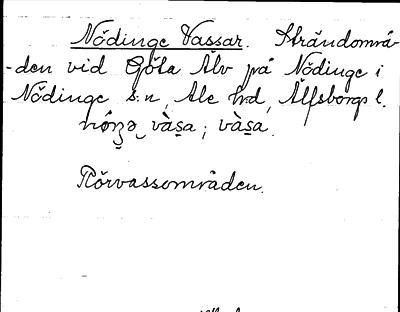 Nödinge Vassar. Strandområ-
-den vid Göta Älv på Nödinge i
Nödinge s:n, Ale hd, Älfsborgs l.
vàsa; vàsa.
Rörvassområden.